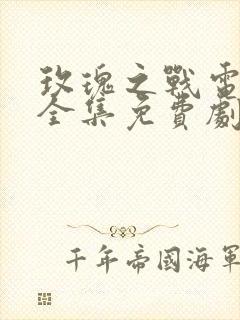 玫瑰之戰電
全集免費劇
千年帝國海軍